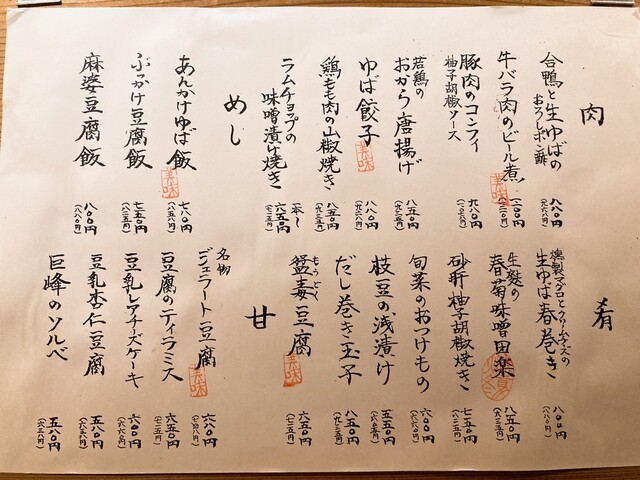 肉
合鴨と生ゆばの
おろしポン酢
八八〇円
(九六八円)
牛バラ肉のビール煮
美味
一一〇〇円
豚肉のコンフィ
柚子胡椒ソース
九八〇円
若鶏の
おから唐揚げ
八五〇円
(九三五円)
ゆば餃子
美味
八八〇円
(九六八円)
鶏もも肉の山椒焼き
八五〇円
(九三五円)
ラムチョップの
味噌漬け焼き
一本〜
六五〇円
(七一五円)
めし
あんかけゆば飯
美味
七八〇円
(八五八円)
ぶっかけ豆腐飯
七五〇円
(八二五円)
麻婆豆腐飯
八〇〇円
(八八〇円)
肴
生ゆば春巻き
八〇〇円
(八八〇円)
生麩の
春菊味噌田楽
八五〇円
(九三五円)
砂肝柚子胡椒焼き
七五〇円
(八二五円)
旬菜のおつけもの
六〇〇円
(六六〇円)
枝豆の浅漬け
五五〇円
(六〇五円)
だし巻き玉子
八五〇円
(九三五円)
もうどく
猛毒豆腐
美味
六五〇円
(七一五円)
甘
名物
ジェラート豆腐
美味
六八〇円
(七四八円)
豆腐のティラミス
六五〇円
(七一五円)
豆乳レアチーズケーキ
六〇〇円
(六六〇円)
豆乳杏仁豆腐
五八〇円
(六三八円)
巨峰のソルベ
五八〇円
(六三八円)